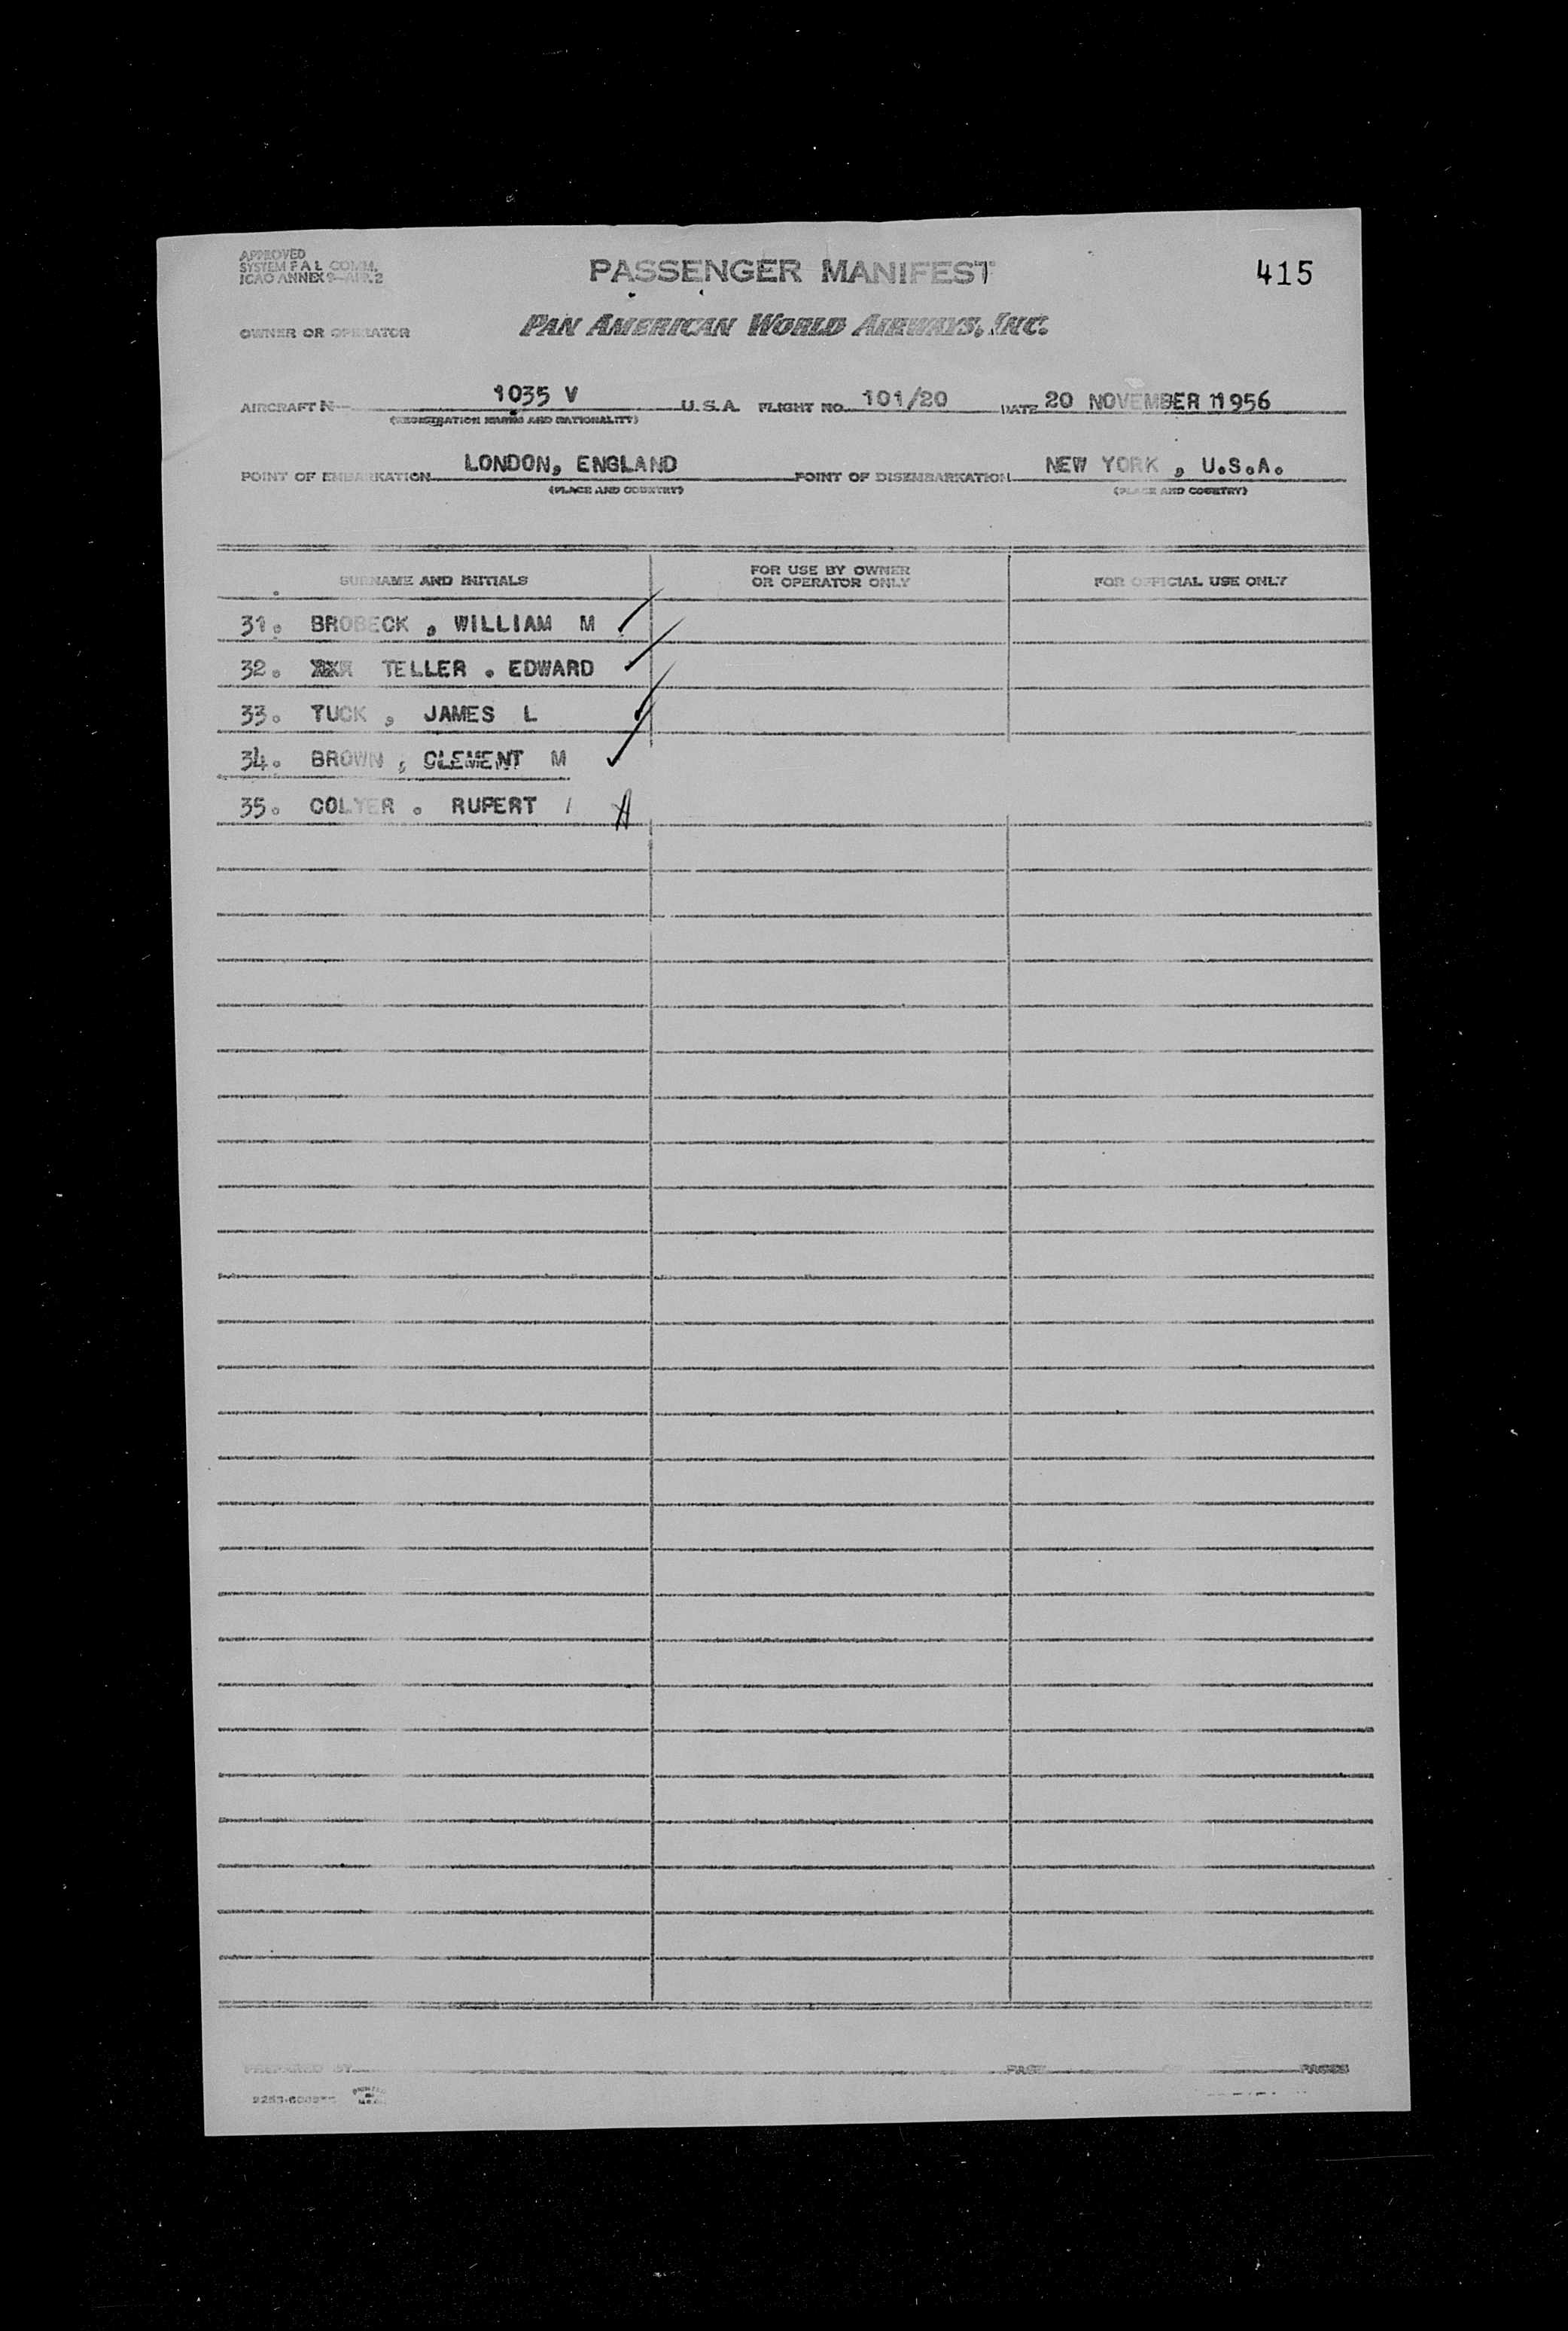 APPROVED
SYSTEM F A L COMM.
ICAO ANNEX 9—APP. 2
PASSENGER MANIFEST
415
OWNER OR OPERATOR
PAN AMERICAN WORLD AIRWAYS, INC.
AIRCRAFT N— 1035 V U.S.A. FLIGHT NO. 101/20 DATE 20 NOVEMBER 1956
(REGISTRATION MARKS AND NATIONALITY)
POINT OF EMBARKATION LONDON, ENGLAND POINT OF DISEMBARKATION NEW YORK , U.S.A.
(PLACE AND COUNTRY) (PLACE AND COUNTRY)
SURNAME AND INITIALS FOR USE BY OWNER OR OPERATOR ONLY FOR OFFICIAL USE ONLY
31. BROBECK , WILLIAM M
32. TELLER . EDWARD
33. TUCK , JAMES L
34. BROWN , CLEMENT M
35. COLYER . RUPERT / A
PREPARED BY PAGE OF PAGES